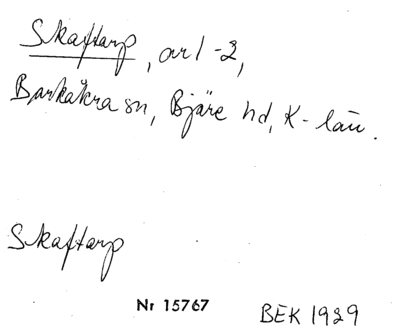 Skaftarp, arl -2,
Barkåkra sn, Bjäre hd, K-län.
Skaftarp
Nr 15767
BEK 1929